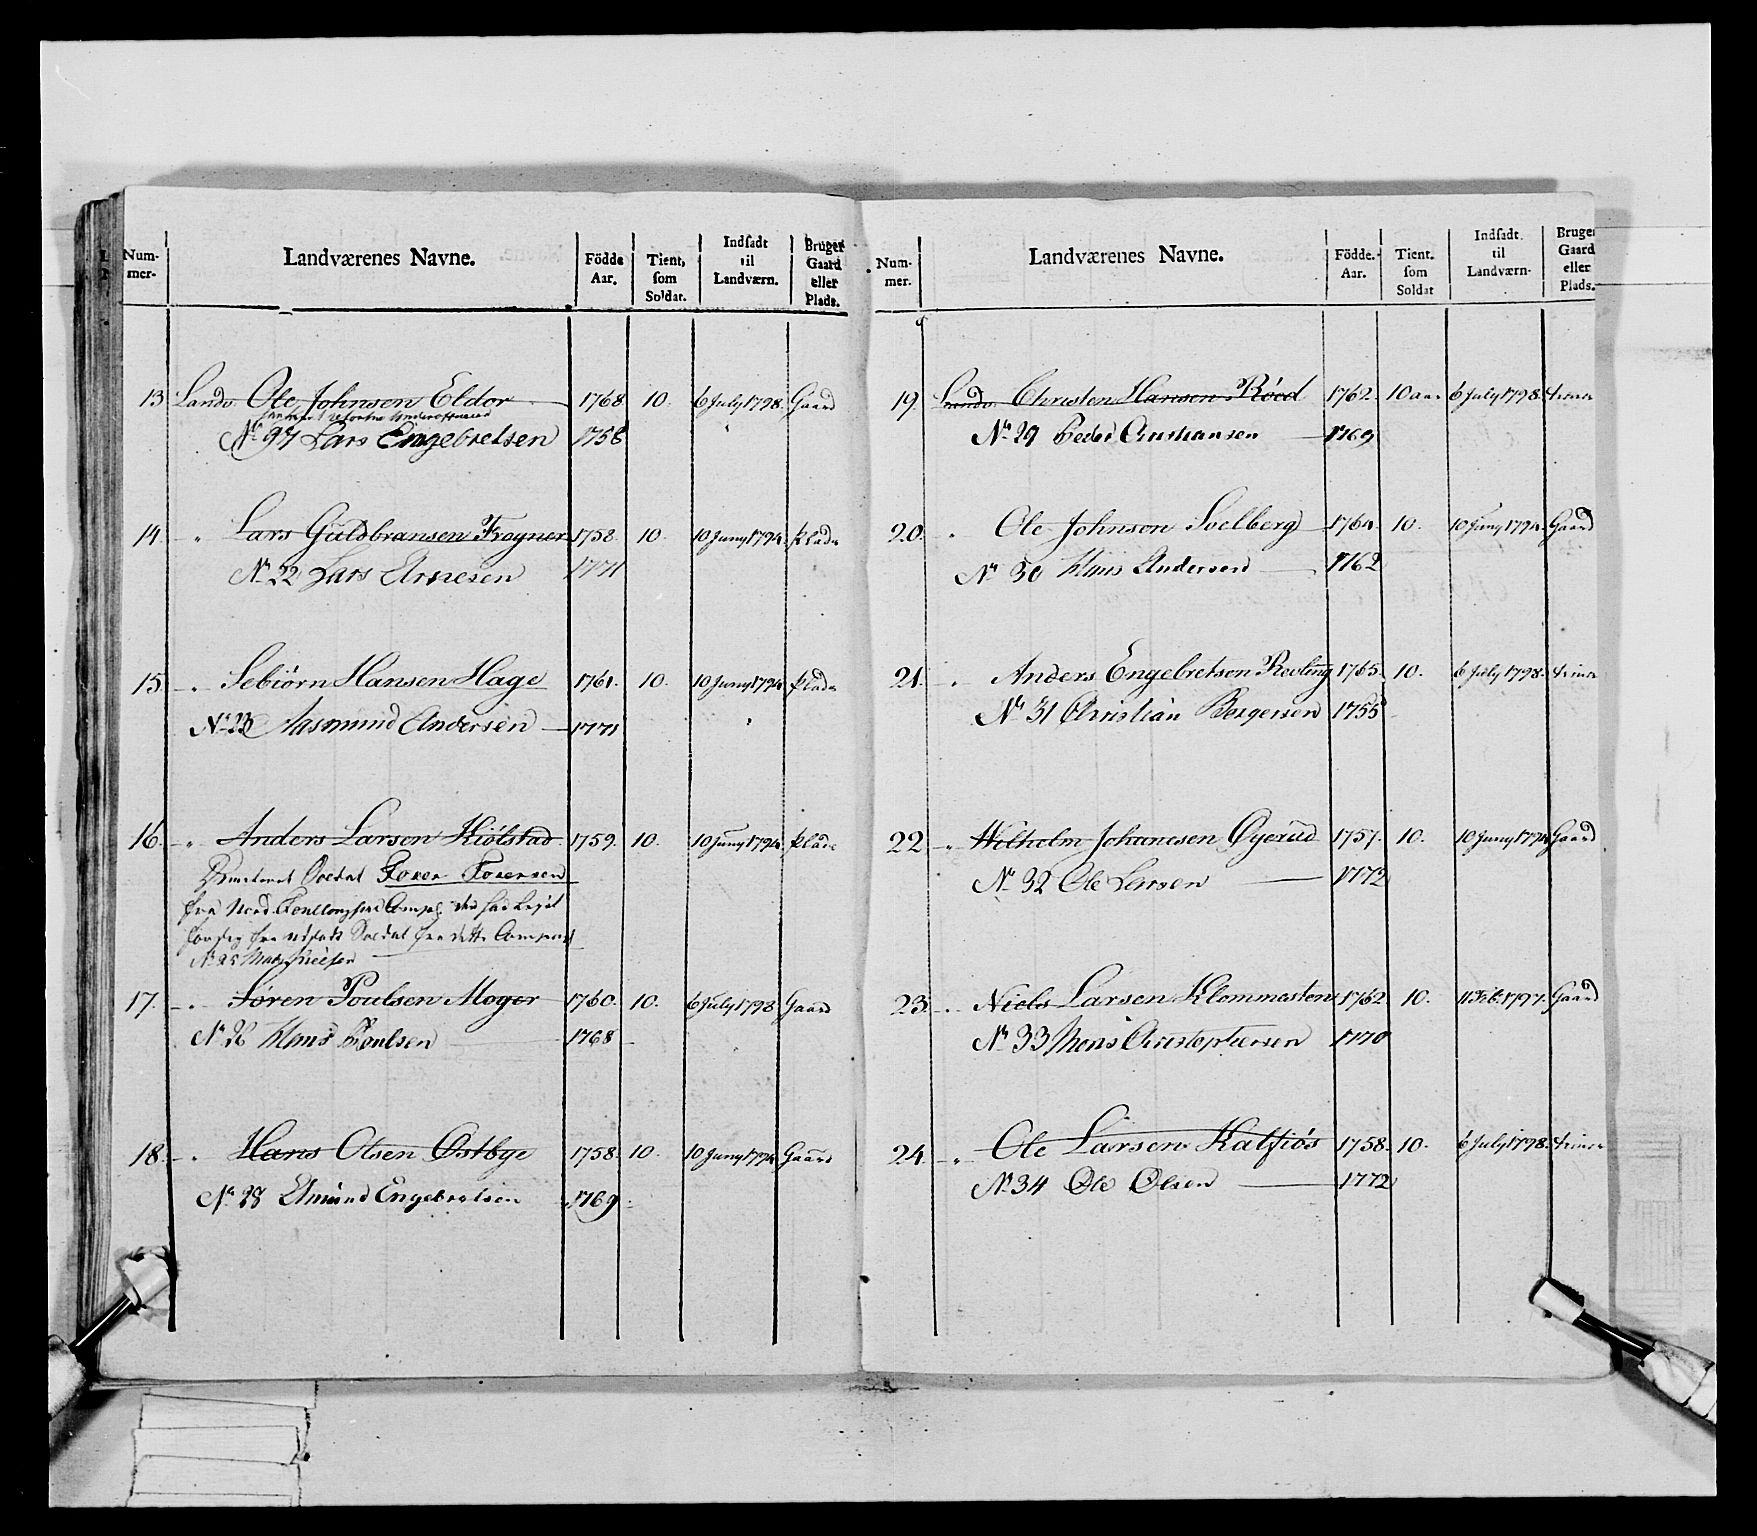 Num-
mer.
Landværenes Navne.
Födde
Aar.
Tient,
som
Soldat.
Indsadt
til
Landværn.
Bruger
Gaard
eller
Plads.
13 Landv Ole Johnsen Eldor 1768 10. 6 July 1798. Gaard
No 97 Lars Engebretsen 1758
14 " Lars Guldbransen Frogner 1758. 10. 10 Juny 1794. Plads
No 22 Lars Arnesen 1771
15. " Sebiörn Hansen Hage 1761. 10. 10 Juny 1794 Plads
No 23 Aasmund Andersen 1771
16. " Anders Larsen Kiölstad 1759. 10. 10 Juny 1794. Plads
Soldat
fra Nord
Soldat fra dette
No 25
17. " Sören Poulsen Moger 1760. 10. 6 July 1798 Gaard
No 26 Hans Poulsen 1768
18. " Hans Olsen Østbye 1758. 10. 10 Juny 1794 Gaard
No 28 Amund Engebretsen 1769
Num-
mer.
Landværenes Navne.
Födde.
Aar.
Tient.
som
Soldat
Indsadt
til
Landværn.
Bruger
Gaard
eller
Plads.
19. Landv Christen Hansen Röed 1762. 10 aar 6 July 1798.
No 29 Peder Christiansen 1769
20. " Ole Johnsen Soelberg 1764. 10. 10 Juny 1794. Gaard
No 30 Hans Andersen 1762
21. " Anders Engebretsen 1765. 10. 6 July 1798.
No 31 Christian Borgersen 1755
22 " Wilhelm Johanesen Øyerud 1757. 10. 10 Juny 1794 Gaard
No 32 Ole Larsen 1772
23. " Niels Larsen 1762. 10. 11 Feb. 1797. Gaard
No 33 Mons Christophersen 1770
24. " Ole Larsen Kalfiös 1758. 10. 6 July 1798.
No 34 Ole Olsen 1772